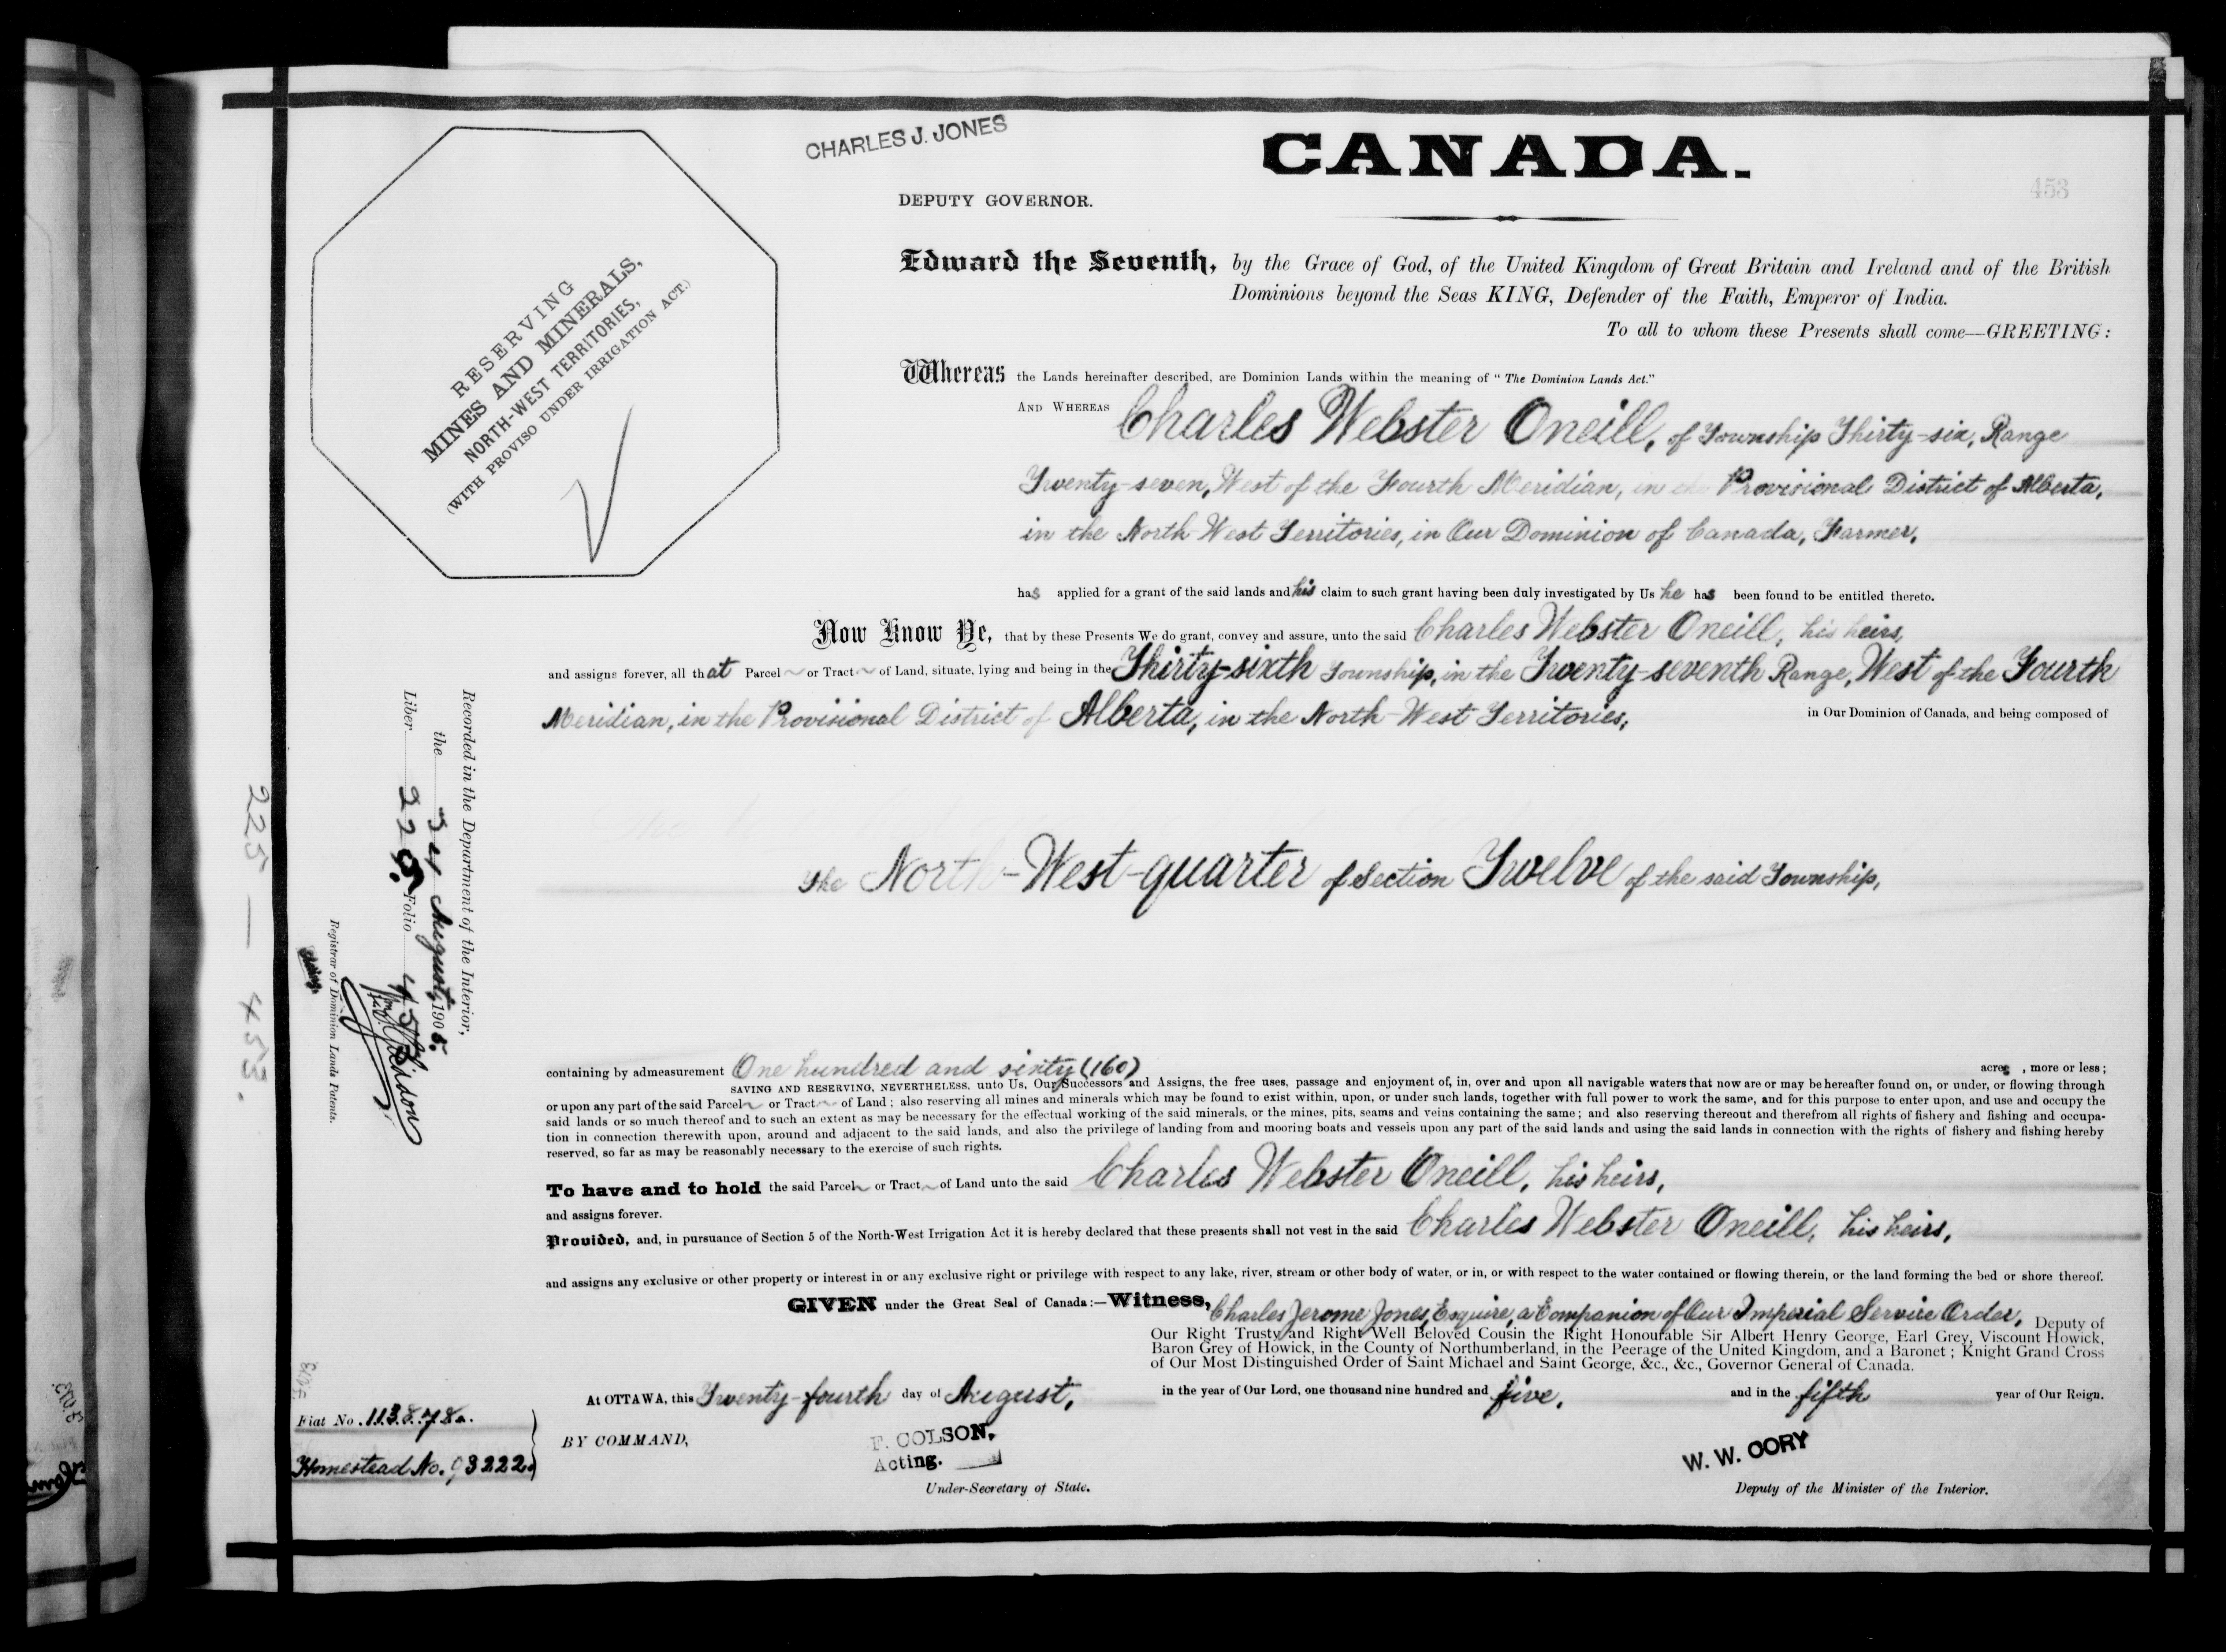 CHARLES J. JONES
CANADA.
453
DEPUTY GOVERNOR.
RESERVING
MINES AND MINERALS,
NORTH-WEST TERRITORIES,
(WITH PROVISO UNDER IRRIGATION ACT.)
Edward the Seventh, by the Grace of God, of the United Kingdom of Great Britain and Ireland and of the British
Dominions beyond the Seas KING, Defender of the Faith, Emperor of India.
To all to whom these Presents shall come—GREETING:
Whereas the Lands hereinafter described, are Dominion Lands within the meaning of "The Dominion Lands Act."
AND WHEREAS Charles Webster Oneill, of Township Thirty-six, Range
Twenty-seven, West of the Fourth Meridian, in the Provisional District of Alberta,
in the North-West Territories, in Our Dominion of Canada, Farmer,
has applied for a grant of the said lands and his claim to such grant having been duly investigated by Us he has been found to be entitled thereto.
Now Know Ye, that by these Presents We do grant, convey and assure, unto the said Charles Webster Oneill, his heirs,
and assigns forever, all that Parcel or Tract of Land, situate, lying and being in the Thirty-sixth Township, in the Twenty-seventh Range, West of the Fourth
Meridian, in the Provisional District of Alberta, in the North-West Territories, in Our Dominion of Canada, and being composed of
The North-West-quarter of Section Twelve of the said Township,
containing by admeasurement One hundred and sixty (160) acres, more or less;
SAVING AND RESERVING, NEVERTHELESS, unto Us, Our Successors and Assigns, the free uses, passage and enjoyment of, in, over and upon all navigable waters that now are or may be hereafter found on, or under, or flowing through
or upon any part of the said Parcel or Tract of Land; also reserving all mines and minerals which may be found to exist within, upon, or under such lands, together with full power to work the same, and for this purpose to enter upon, and use and occupy the
said lands or so much thereof and to such an extent as may be necessary for the effectual working of the said minerals, or the mines, pits, seams and veins containing the same; and also reserving thereout and therefrom all rights of fishery and fishing and occupa-
tion in connection therewith upon, around and adjacent to the said lands, and also the privilege of landing from and mooring boats and vessels upon any part of the said lands and using the said lands in connection with the rights of fishery and fishing hereby
reserved, so far as may be reasonably necessary to the exercise of such rights.
To have and to hold the said Parcel or Tract of Land unto the said Charles Webster Oneill, his heirs,
and assigns forever.
Provided, and, in pursuance of Section 5 of the North-West Irrigation Act it is hereby declared that these presents shall not vest in the said Charles Webster Oneill, his heirs,
and assigns any exclusive or other property or interest in or any exclusive right or privilege with respect to any lake, river, stream or other body of water, or in, or with respect to the water contained or flowing therein, or the land forming the bed or shore thereof.
GIVEN under the Great Seal of Canada:—Witness, Charles Jerome Jones, Esquire, a Companion of Our Imperial Service Order, Deputy of
Our Right Trusty and Right Well Beloved Cousin the Right Honourable Sir Albert Henry George, Earl Grey, Viscount Howick,
Baron Grey of Howick, in the County of Northumberland, in the Peerage of the United Kingdom, and a Baronet; Knight Grand Cross
of Our Most Distinguished Order of Saint Michael and Saint George, &c., &c., Governor General of Canada.
At OTTAWA, this Twenty-fourth day of August, in the year of Our Lord, one thousand nine hundred and five, and in the fifth year of Our Reign.
BY COMMAND,
F. COLSON,
Acting.
Under-Secretary of State.
W. W. CORY
Deputy of the Minister of the Interior.
Fiat No. 113878.
Homestead No. 93222.
Recorded in the Department of the Interior,
the 24 August, 1905.
Liber 225 Folio 453
Registrar of Dominion Lands Patents.
225 — 453.